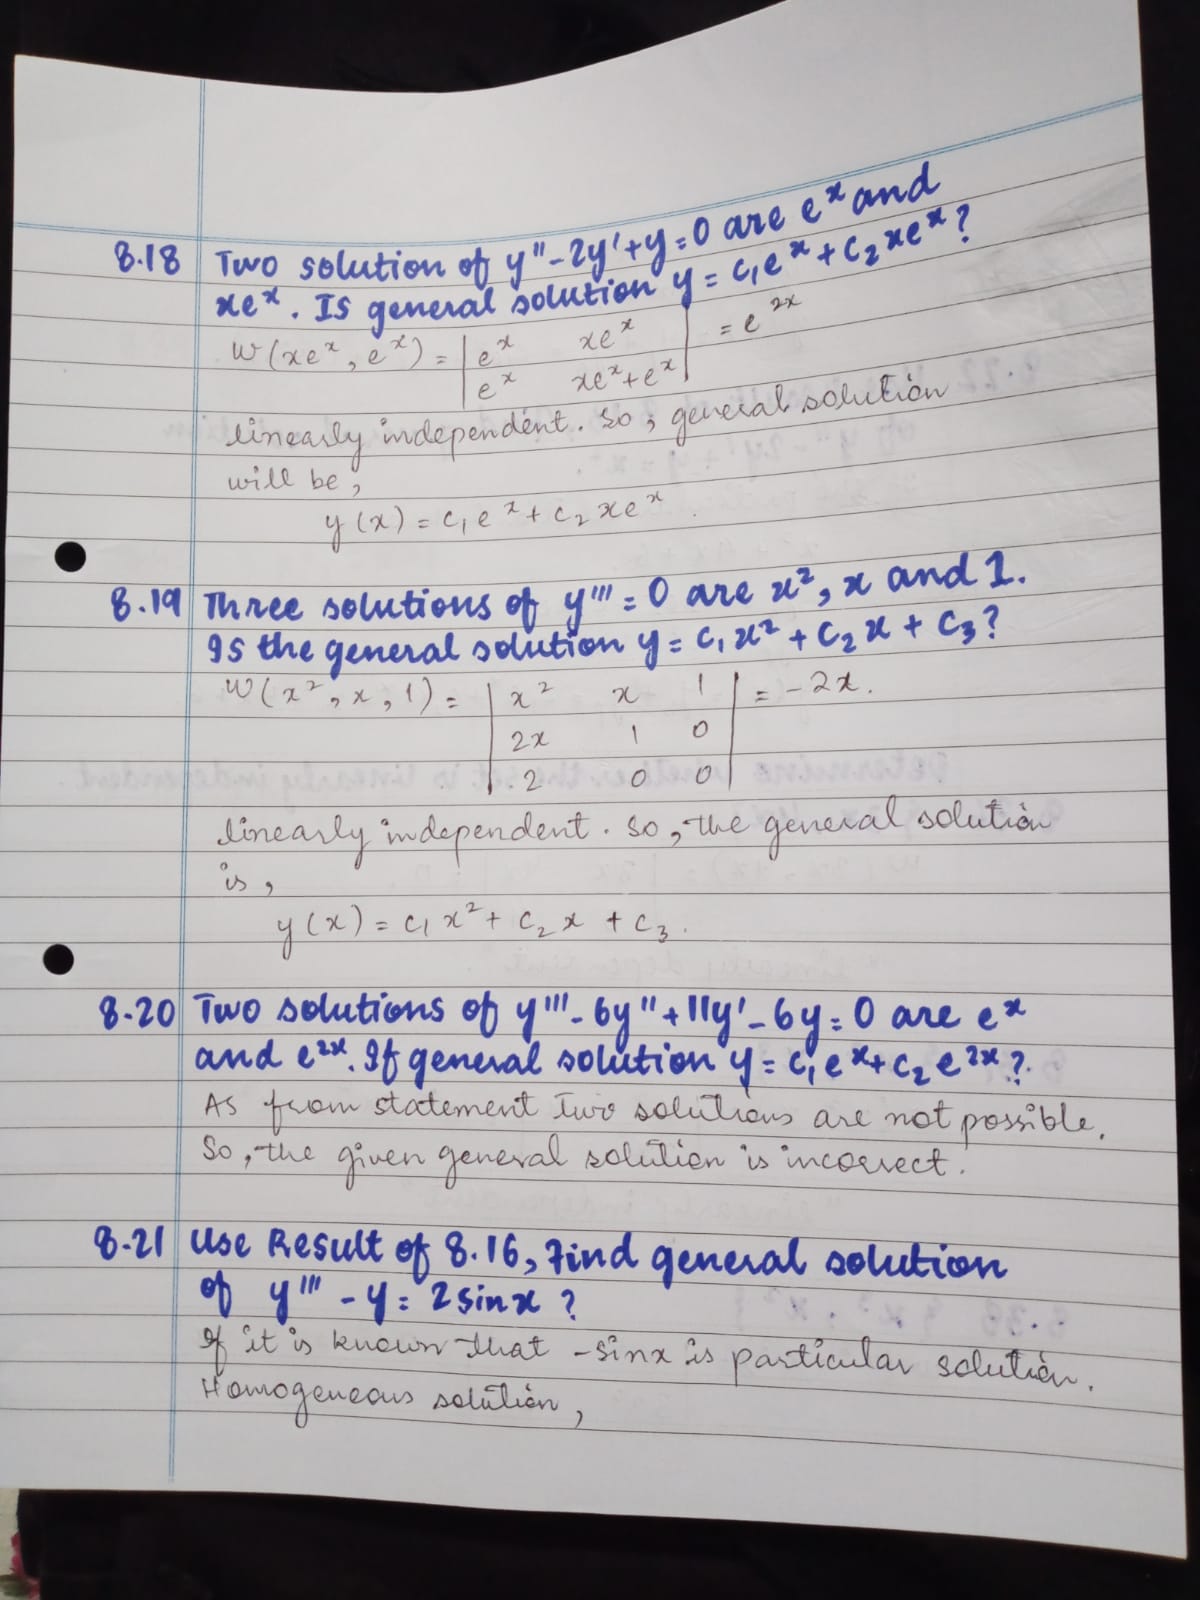 8.18 Two solution of y"-2y'+y=0 are eˣ and
xeˣ. Is general solution y = c₁eˣ + c₂xeˣ?
W(xeˣ, eˣ) = | eˣ xeˣ | = e²ˣ
| eˣ xeˣ+eˣ |
linearly independent. So, general solution
will be,
y(x) = c₁eˣ + c₂xeˣ.
8.19 Three solutions of y''' = 0 are x², x and 1.
Is the general solution y = c₁x² + c₂x + c₃?
W(x², x, 1) = | x² x 1 | = -2x.
| 2x 1 0 |
| 2 0 0 |
linearly independent. So, the general solution
is,
y(x) = c₁x² + c₂x + c₃.
8.20 Two solutions of y'''-6y"+11y'-6y=0 are eˣ
and e²ˣ. If general solution y = c₁eˣ+c₂e²ˣ?
As from statement Two solutions are not possible.
So, the given general solution is incorrect.
8.21 Use Result of 8.16, Find general solution
of y''' - y = 2sinx ?
If it is known that -sinx is particular solution.
Homogeneous solution,